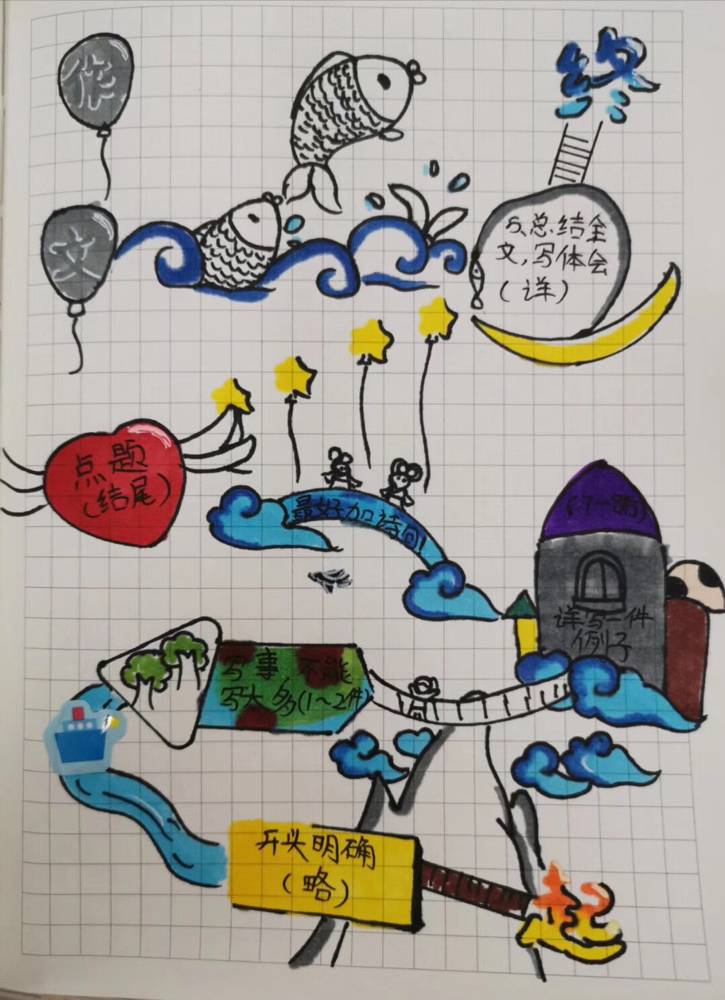 文
终
5、总结全
文,写体会
(详)
点题
(结尾)
最好加诗句
详写一件
例子
写事 不能
写太多(1~2件)
开头明确
(略)
起